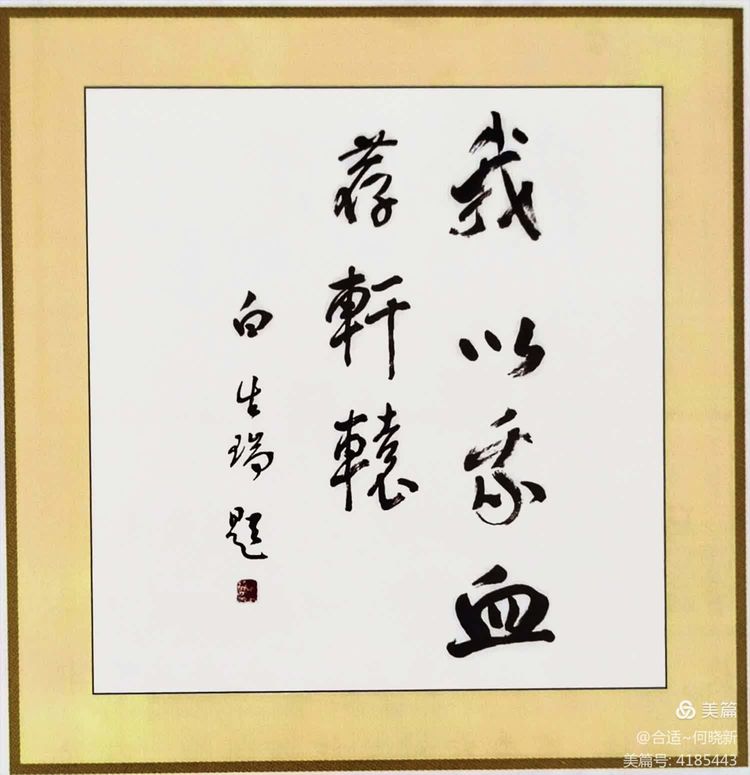 我以我血
荐軒轅
白生瑞题
美篇
@合适~何晓新
美篇号: 4185443